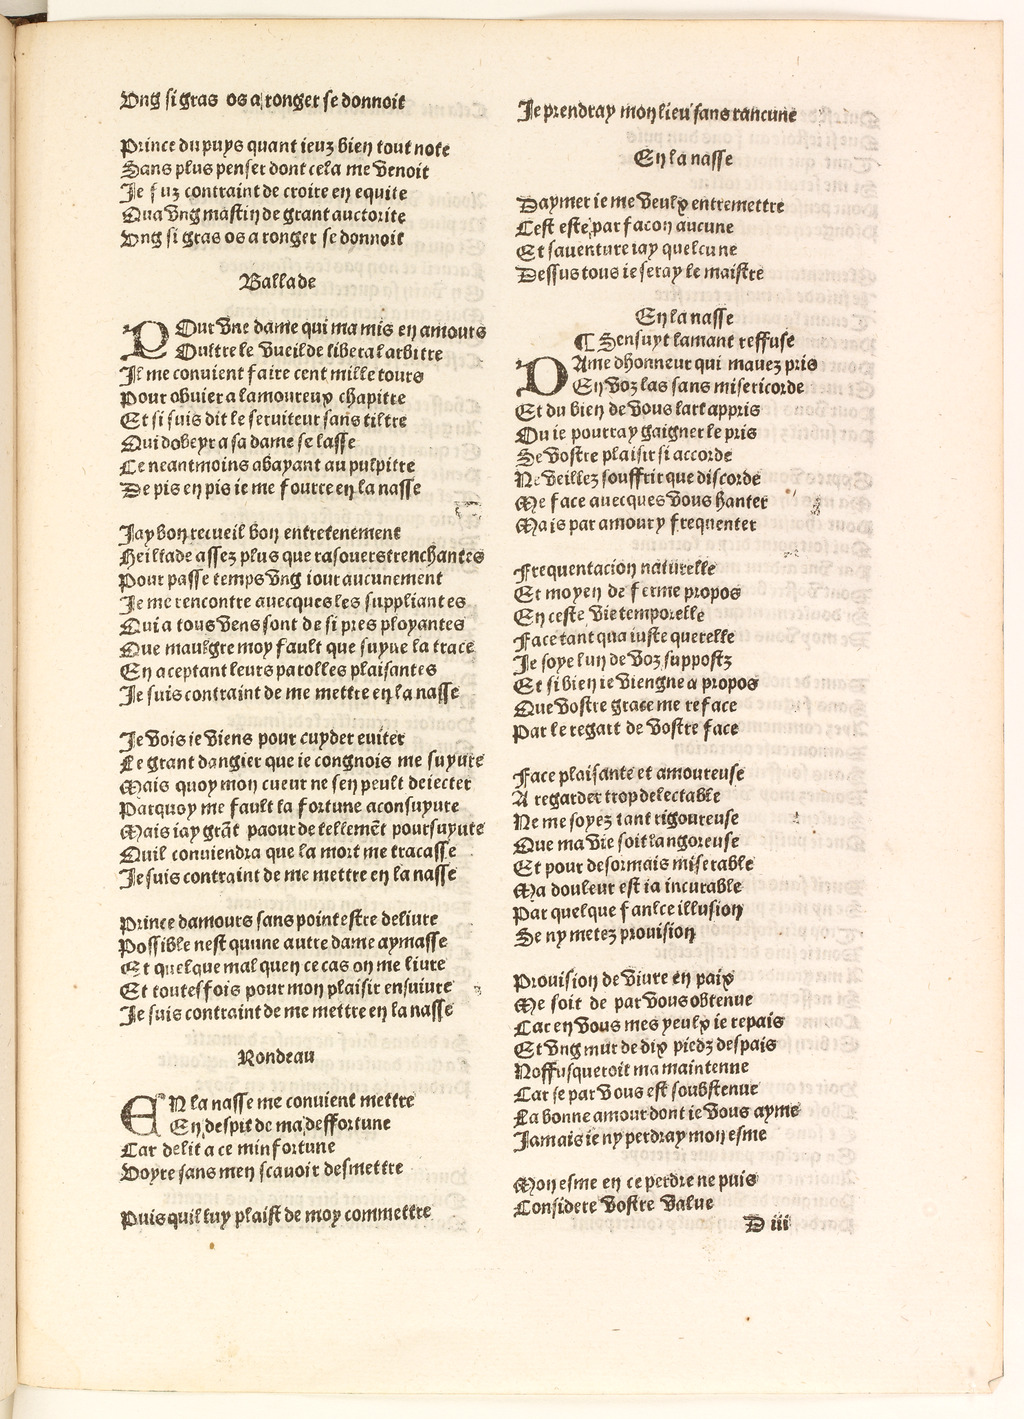 Vng si gras os a ronger se donnoit
Prince du puys quant ieuz bien tout note
Sans plus penser dont cela me venoit
Je fuz contraint de croire en equite
Qua vng mastin de grant auctorite
Vng si gras os a ronger se donnoit
Ballade
POur vne dame qui ma mis en amours
Oultre le vueil de liberal arbitre
Il me conuient faire cent mille tours
Pour obuier a lamoureux chapitre
Et si suis dit le seruiteur sans tiltre
Qui dobeyr a sa dame se lasse
Ce neantmoins abayant au pulpitre
De pis en pis ie me fourre en la nasse
Jay bon recueil bon entretenement
Heillade assez plus que rasouers trenchantes
Pour passe temps vng iour aucunement
Je me rencontre auecques les suppliantes
Qui a tous vens sont de si pres ployantes
Que maulgre moy fault que suyue la trace
En aceptant leurs parolles plaisantes
Je suis contraint de me mettre en la nasse
Je vois ie viens pour cuyder euiter
Le grant dangier que ie congnois me suyure
Mais quoy mon cueur ne sen peult deiecter
Parquoy me fault la fortune aconsuyure
Mais iay grãt paour de tellemẽt poursuyure
Quil conuiendra que la mort me tracasse
Je suis contraint de me mettre en la nasse
Prince damours sans point estre deliure
Possible nest quune autre dame aymasse
Et quelque mal quen ce cas on me liure
Et toutesfois pour mon plaisir ensuiure
Je suis contraint de me mettre en la nasse
Rondeau
EN la nasse me conuient mettre
En despit de ma deffortune
Car delit a ce minfortune
Voyre sans men scauoir desmettre
Puis quil luy plaist de moy commettre
Je prendray mon lieu sans rancune
En la nasse
Daymer ie me veulx entremettre
Cest este par facon aucune
Et sauenture iay quelcune
Dessus tous ie seray le maistre
En la nasse
¶ Sensuyt lamant reffuse
DAme dhonneur qui mauez pris
En voz las sans misericorde
Et du bien de vous lart appris
Ou ie pourray gaigner le pris
Se vostre plaisir si accorde
Ne veillez souffrir que discorde
Me face auecques vous hanter
Mais par amour y frequenter
Frequentacion naturelle
Et moyen de ferme propos
En ceste vie temporelle
Face tant qua iuste querelle
Je soye lun de voz suppostz
Et si bien ie viengne a propos
Que vostre grace me reface
Par le regart de vostre face
Face plaisante et amoureuse
A regarder trop delectable
Ne me soyez tant rigoureuse
Que ma vie soit langoreuse
Et pour desormais miserable
Ma douleur est ia incurable
Par quelque faulce illusion
Se ny metez prouision
Prouision de viure en paix
Me soit de par vous obtenue
Car en vous mes yeulx ie repais
Et vng mur de dix piedz despais
Noffusqueroit ma maintenne
Car se par vous est soubstenue
La bonne amour dont ie vous ayme
Jamais ie ny perdray mon esme
Mon esme en ce perdre ne puis
Considere vostre value
D iii